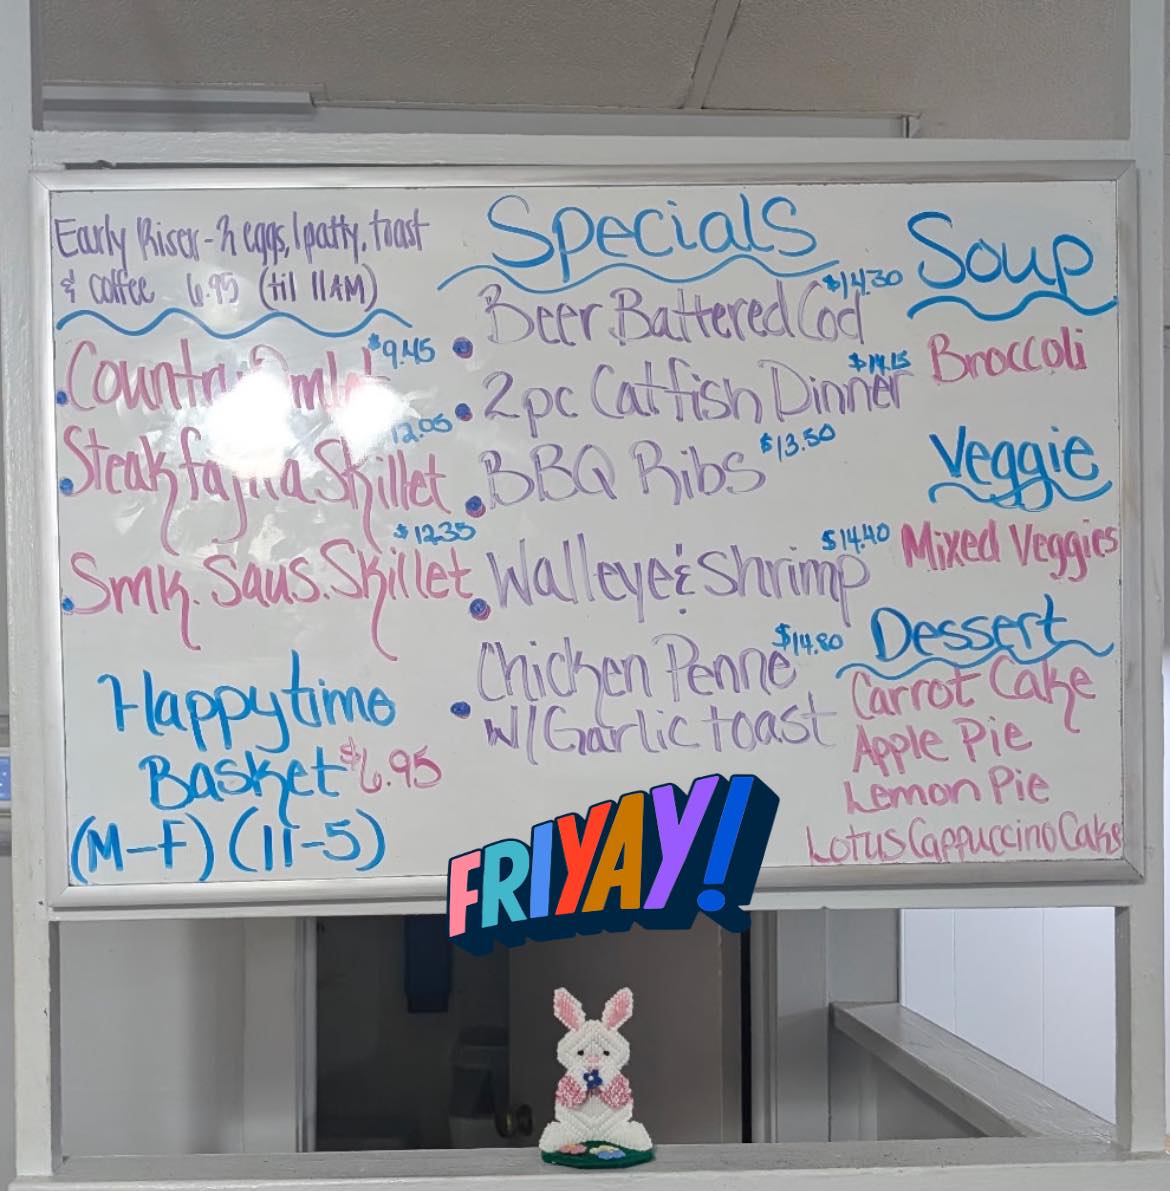 Early Riser - 2 eggs, 1 patty, toast
& coffee 6.95 (til 11AM)
$9.45
Country Omlet
12.05
Steak fajita Skillet
$12.35
Smk. Saus. Skillet
Happytime
Basket $6.95
(M-F) (11-5)
Specials
$14.30
Beer Battered Cod
$14.15
2pc Catfish Dinner
BBQ Ribs $13.50
$14.40
Walleye & Shrimp
$14.80
Chicken Penne
w/ Garlic toast
Soup
Broccoli
Veggie
Mixed Veggies
Dessert
Carrot Cake
Apple Pie
Lemon Pie
Lotus Cappuccino Cake
FRIYAY!